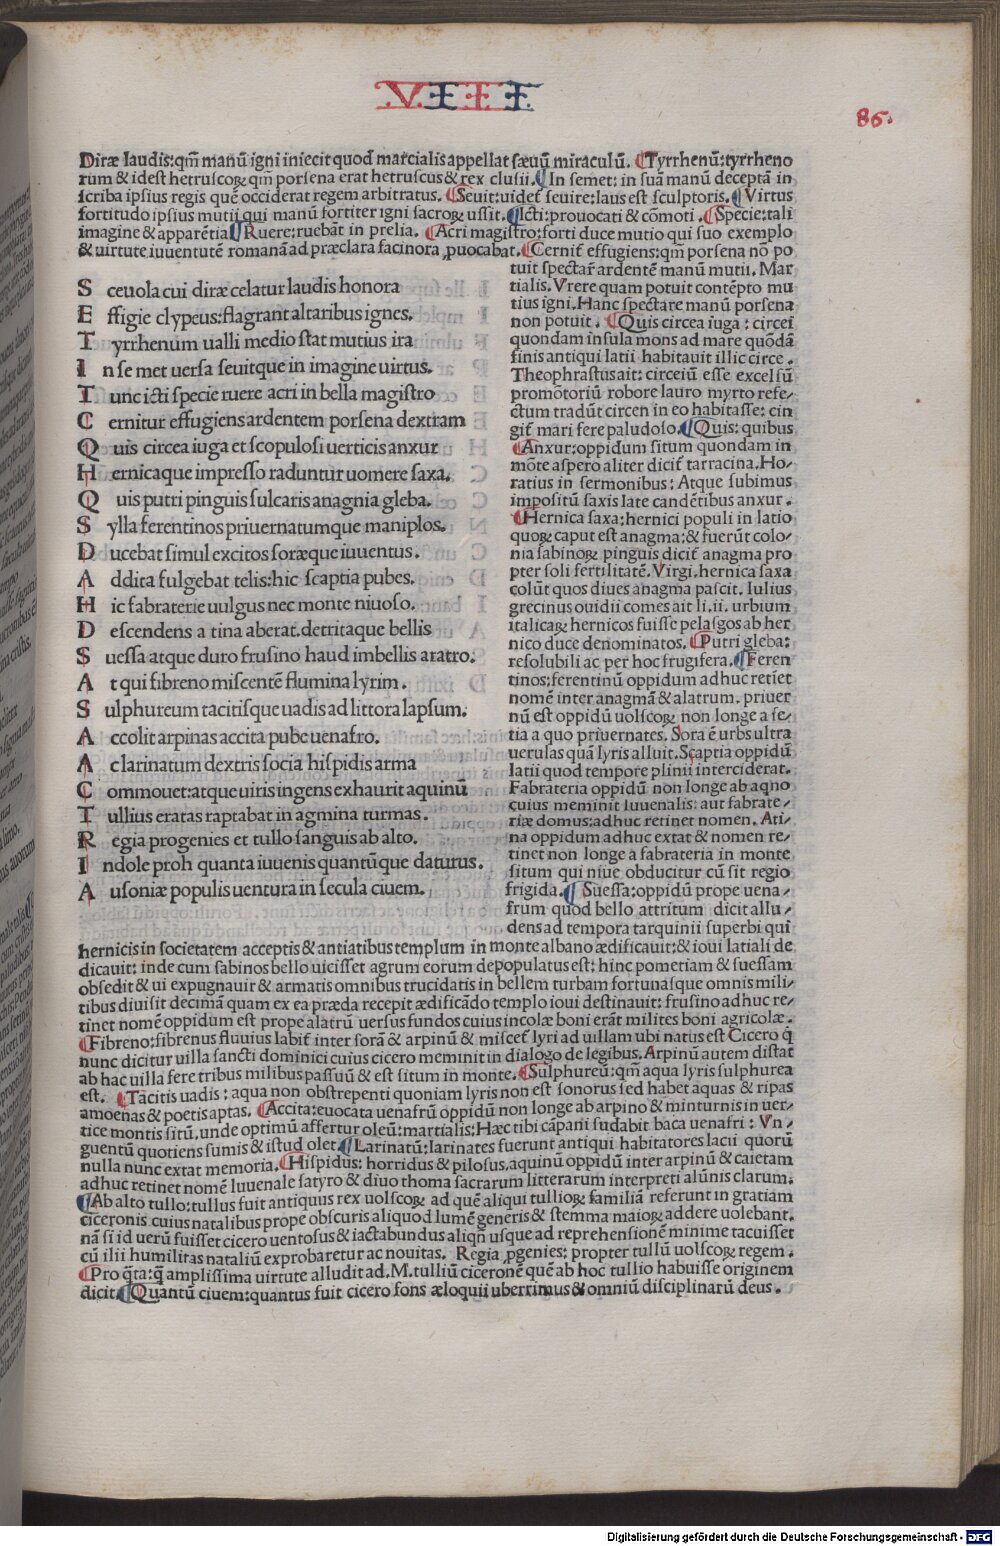 VIII
86.
Diræ laudis: qm̄ manū igni iniecit quod marcialis appellat sæuū miraculū. Tyrrhenū: tyrrheno
rum & idest hetruscoꝝ qm̄ porsena erat hetruscus & rex clusii. In semet: in suā manū deceptā in
scriba ipsius regis quē occiderat regem arbitratus. Seuit: uidet̃ seuire: laus est sculptoris. Virtus
fortitudo ipsius mutii qui manū fortiter igni sacroꝝ ussit. Icti: prouocati & cōmoti. Specie: tali
imagine & apparētia Ruere: ruebāt in prelia. Acri magistro: forti duce mutio qui suo exemplo
& uirtute iuuentutē romanā ad præclara facinora ꝓuocabat. Cernit̃ effugiens: qm̄ porsena nō po
S ceuola cui diræ celatur laudis honora
E ffigie clypeus: flagrant altaribus ignes.
T yrrhenum ualli medio stat mutius ira
I n se met uersa seuitque in imagine uirtus.
T unc icti specie ruere acri in bella magistro
C ernitur effugiens ardentem porsena dextram
Q uis circea iuga et scopulosi uerticis anxur
H ernicaque impresso raduntur uomere saxa.
Q uis putri pinguis sulcaris anagnia gleba.
S ylla ferentinos priuernatumque maniplos.
D ucebat simul excitos soræque iuuentus.
A ddita fulgebat telis: hic scaptia pubes.
H ic fabraterie uulgus nec monte niuoso.
D escendens a tina aberat. detritaque bellis
S uessa atque duro frusino haud imbellis aratro.
A t qui fibreno miscentē flumina lyrim.
S ulphureum tacitisque uadis ad littora lapsum.
A ccolit arpinas accita pube uenafro.
A c larinatum dextris socia hispidis arma
C ommouet: atque uiris ingens exhaurit aquinū
T ullius eratas raptabat in agmina turmas.
R egia progenies et tullo sanguis ab alto.
I ndole proh quanta iuuenis quantūque daturus.
A usoniæ populis uentura in secula ciuem.
tuit spectar̃ ardentē manū mutii. Mar
tialis. Vrere quam potuit contēpto mu
tius igni. Hanc spectare manū porsena
non potuit. Quis circea iuga: circei
quondam insula mons ad mare quōdā
finis antiqui latii habitauit illic circe.
Theophrastus ait: circeiū esse excelsū
promōtoriū robore lauro myrto refe⸗
ctum tradūt circen in eo habitasse: cin
git̃ mari fere paludoso. Quis: quibus
Anxur: oppidum situm quondam in
mōte aspero aliter dicit̃ tarracina. Ho⸗
ratius in sermonibus: Atque subimus
impositū saxis late candētibus anxur.
Hernica saxa: hernici populi in latio
quoꝝ caput est anagma: & fuerūt colo⸗
nia sabinoꝝ pinguis dicit̃ anagma pro
pter soli fertilitatē. Virgi. hernica saxa
colūt quos diues anagma pascit. Iulius
grecinus ouidii comes ait li. ii. urbium
italicaꝝ hernicos fuisse pelasgos ab her
nico duce denominatos. Putri gleba:
resolubili ac per hoc frugifera. Feren
tinos: ferentinū oppidum adhuc retiet
nomē inter anagmā & alatrum. priuer
nū est oppidū uolscoꝝ non longe a se⸗
tia a quo priuernates. Sora ē urbs ultra
uerulas quā lyris alluit. Scaptia oppidū
latii quod tempore plinii interciderat.
Fabrateria oppidū non longe ab aqno
cuius meminit Iuuenalis: aut fabrate⸗
riæ domus: adhuc retinet nomen. Ati⸗
na oppidum adhuc extat & nomen re⸗
tinet non longe a fabrateria in monte
situm qui niue obducitur cū sit regio
frigida. Suessa: oppidū prope uena⸗
frum quod bello attritum dicit allu⸗
dens ad tempora tarquinii superbi qui
hernicis in societatem acceptis & antiatibus templum in monte albano ædificauit: & ioui latiali de
dicauit: inde cum sabinos bello uicisset agrum eorum depopulatus est: hinc pometiam & suessam
obsedit & ui expugnauit & armatis omnibus trucidatis in bellem turbam fortunasque omnis mili⸗
tibus diuisit decimā quam ex ea præda recepit ædificādo templo ioui destinauit: frusino adhuc re⸗
tinet nomē oppidum est prope alatrū uersus fundos cuius incolæ boni erāt milites boni agricolæ.
Fibreno: fibrenus fluuius labit̃ inter sorā & arpinū & miscet̃ lyri ad uillam ubi natus est Cicero q̄
nunc dicitur uilla sancti dominici cuius cicero meminit in dialogo de legibus. Arpinū autem distat
ab hac uilla fere tribus milibus passuū & est situm in monte. Sulphureū: qm̄ aqua lyris sulphurea
est. Tacitis uadis: aqua non obstrepenti quoniam lyris non est sonorus sed habet aquas & ripas
amoenas & poetis aptas. Accita: euocata uenafrū oppidū non longe ab arpino & minturnis in uer⸗
tice montis sitū, unde optimū affertur oleū: martialis: Hæc tibi cāpani sudabit baca uenafri: Vn⸗
guentū quotiens sumis & istud olet. Larinatū: larinates fuerunt antiqui habitatores lacii quorū
nulla nunc extat memoria. Hispidus: horridus & pilosus. aquinū oppidū inter arpinū & caietam
adhuc retinet nomē Iuuenale satyro & diuo thoma sacrarum litterarum interpreti alūnis clarum.
Ab alto tullo: tullus fuit antiquus rex uolscoꝝ ad quē aliqui tullioꝝ familiā referunt in gratiam
ciceronis cuius natalibus prope obscuris aliquod lumē generis & stemma maioꝝ addere uolebant.
nā si id uerū fuisset cicero uentosus & iactabundus aliqn̄ usque ad reprehensionē minime tacuisset
cū ilii humilitas nataliū exprobaretur ac nouitas. Regia ꝓgenies: propter tullū uolscoꝝ regem.
Pro q̄ta: q̄ amplissima uirtute alludit ad. M. tulliū ciceronē quē ab hoc tullio habuisse originem
dicit. Quantū ciuem: quantus fuit cicero fons æloquii uberrimus & omniū disciplinarū deus.
Digitalisierung gefördert durch die Deutsche Forschungsgemeinschaft - DFG